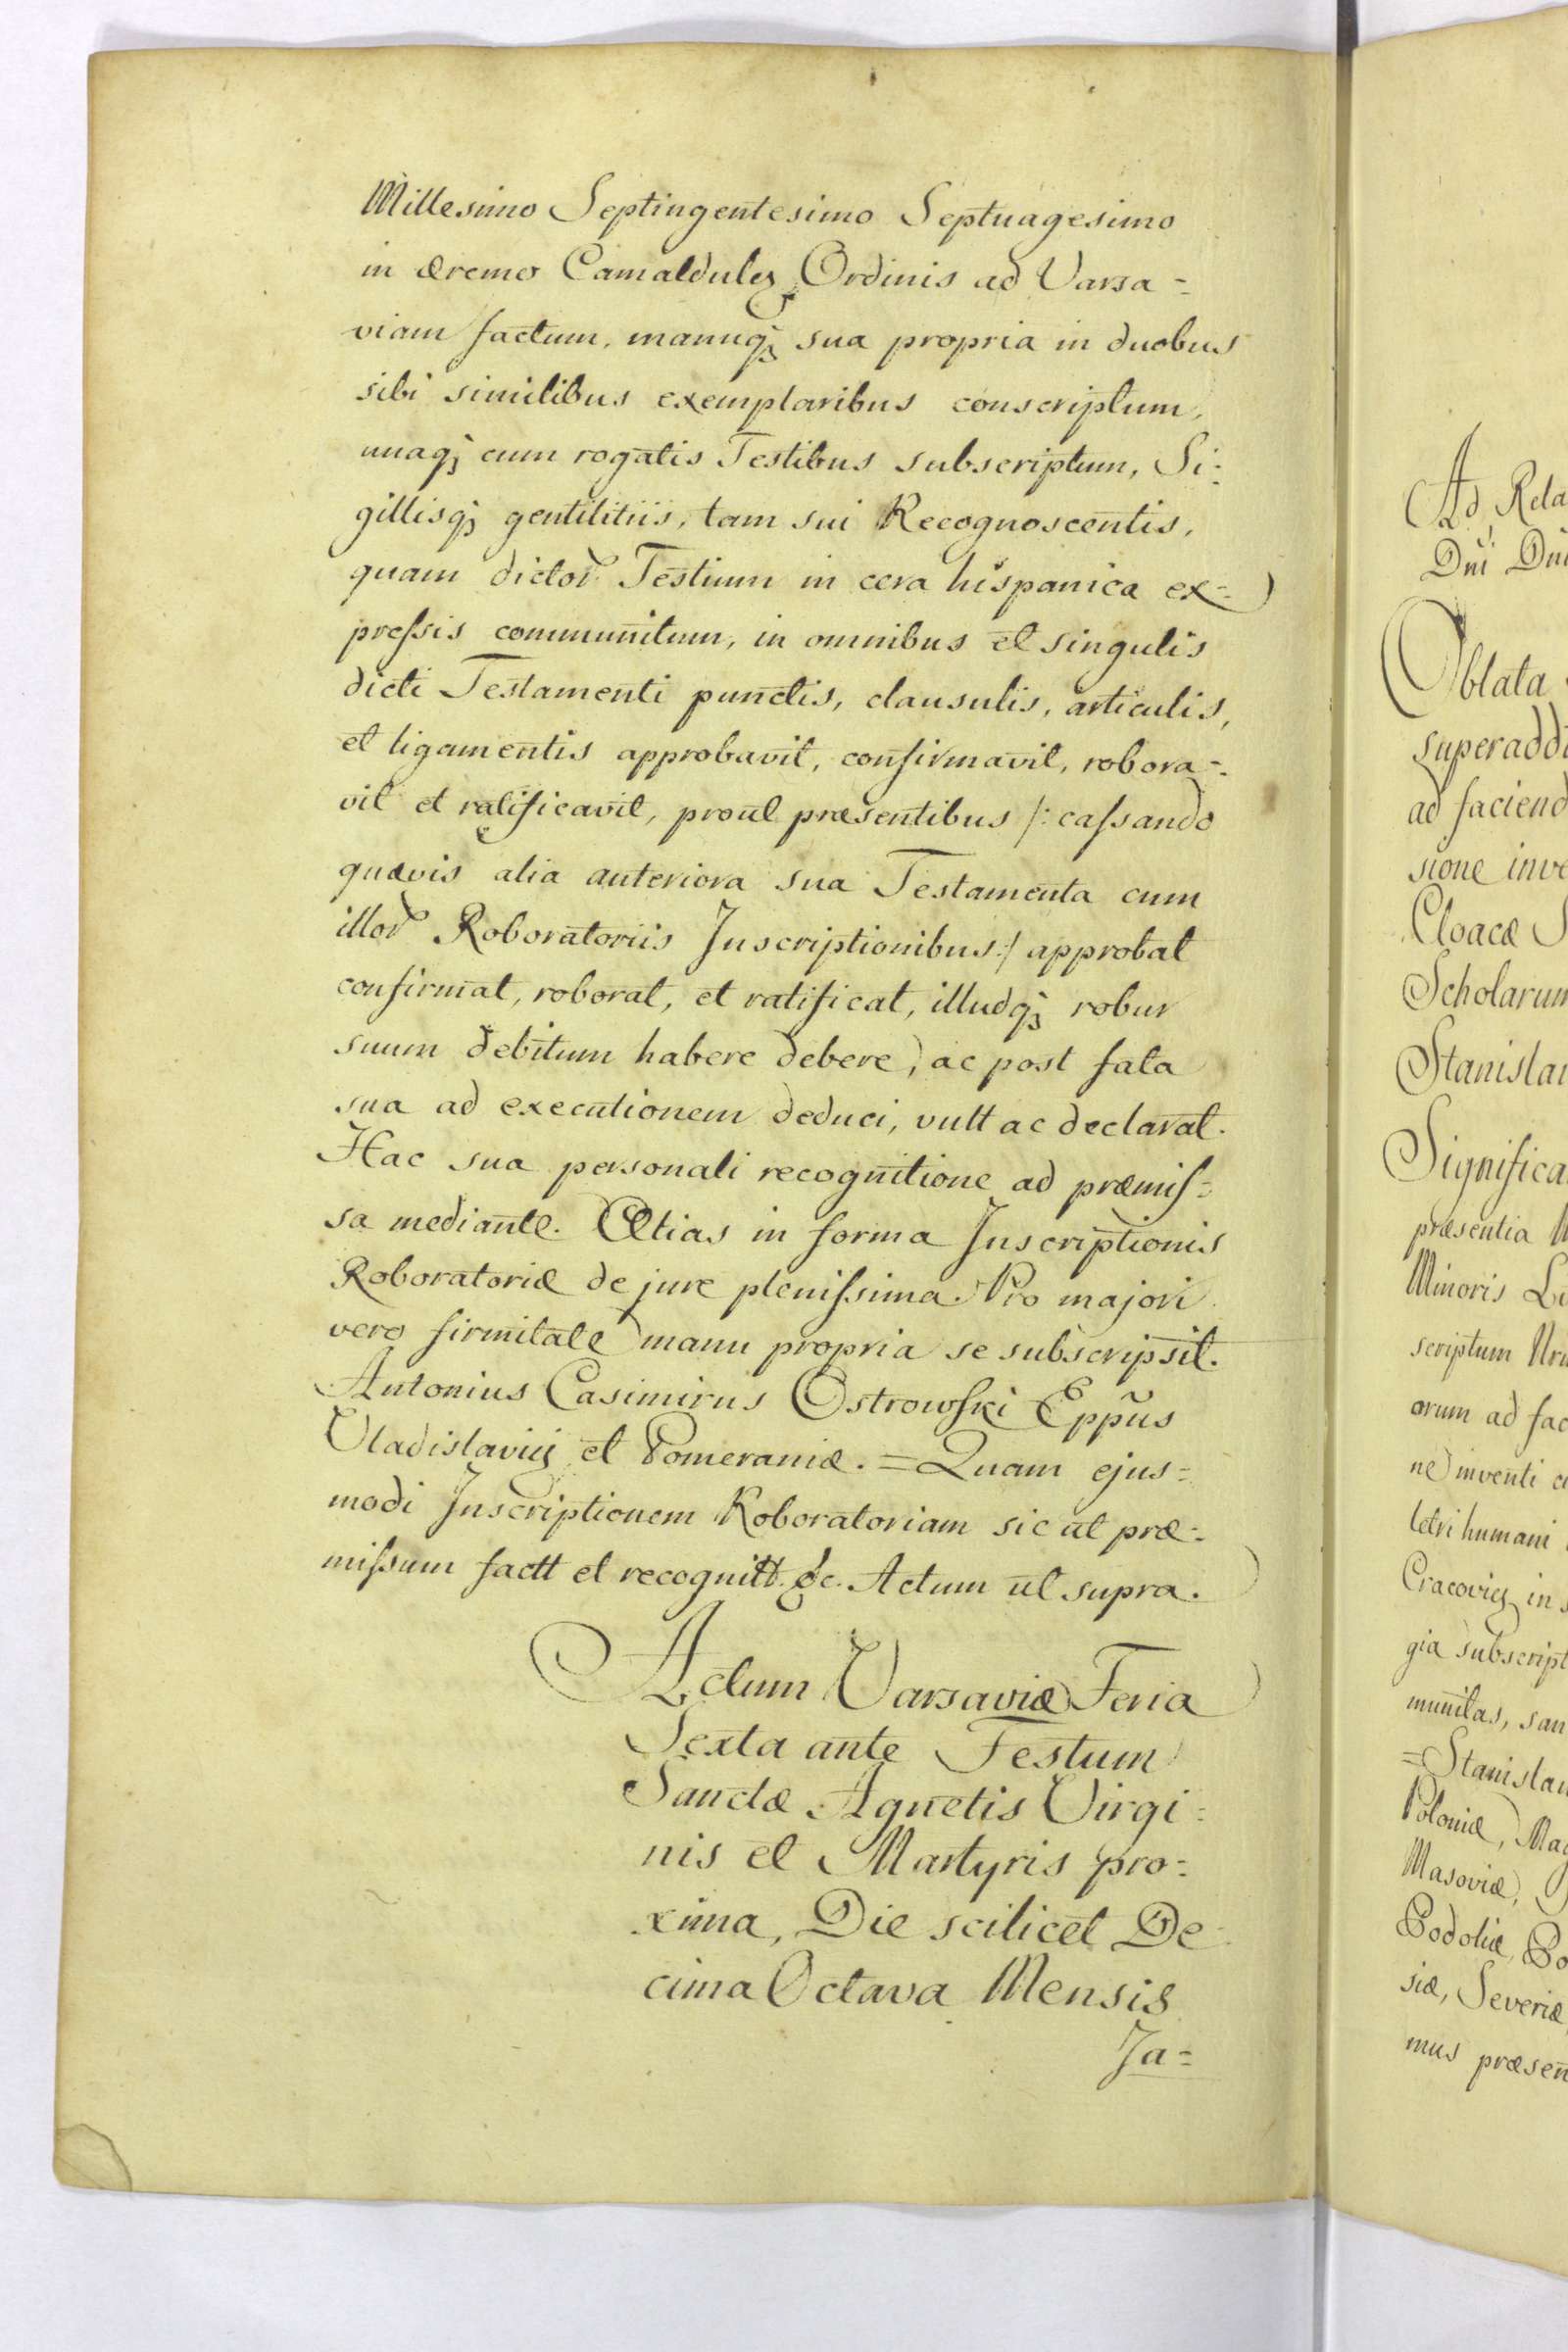 Millesimo Septingentesimo Septuagesimo
in æremo Camaldulę Ordinis ad Varsa=
viam factum, manuq; sua propria in duobus
sibi similibus exemplaribus conscriptum,
unaq; cum rogatis Testibus subscriptum, Si=
gillisq; gentilitiis, tam sui Recognoscentis,
quam dictor Testium in cera hispanica ex=
preſsis communitum, in omnibus et singulis
dicti Testamenti punctis, clausulis, articulis,
et ligamentis approbavit, confirmavit, robora=
vit et ratificavit, prout præsentibus /: caſsando
quævis alia anteriora sua Testamenta cum
illor Roboratoriis Inscriptionibus :/ approbat
confirmat, roborat, et ratificat, illudq; robur
suum debitum habere debere, ac post fata
sua ad executionem deduci, vult ac declarat.
Hac sua personali recognitione ad præmiſ=
sa mediante. Ætias in forma Inscriptionis
Roboratoriæ de jure pleniſsima. Pro majori
vero firmitate manu propria se subscripsit.
Antonius Casimirus Ostrowski Eppũs
Vladislavię et Pomeraniæ. = Quam ejus=
modi Inscriptionem Roboratoriam sic ut præ=
miſsum factt et recognitt. &c. Actum ut supra.
Actum Varsaviæ Feria
Sexta ante Festum
Sanctæ Agnetis Virgi=
nis et Martyris pro=
xima, Die scilicet De=
cima Octava Mensis
Ja=
Ad Rela
Dni Dni
Oblata
superaddi
ad faciend
sione inve
Cloacæ S
Scholarum
Stanislau
Significa
præsentia
Minoris
scriptum
orum ad fac
ne inventi
letri humani
Cracovię in
gia subscript
munitas, san
=Stanislau
Poloniæ, Mag
Masoviæ,
Podoliæ, Po
siæ, Severiæ
mus præsen